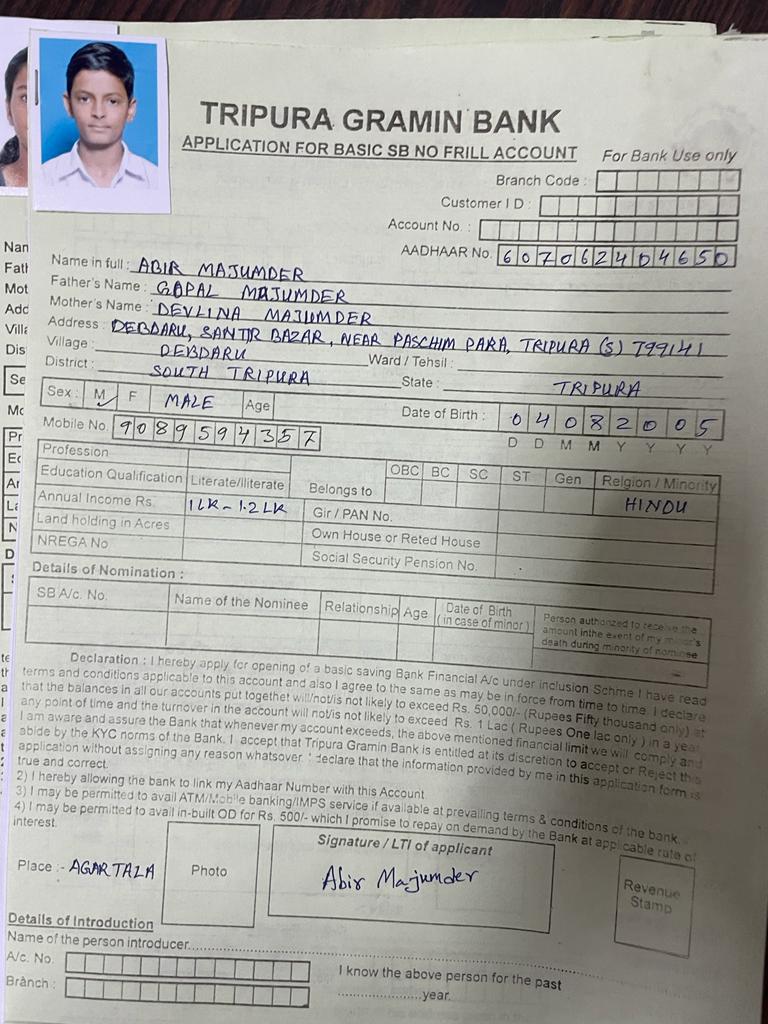 TRIPURA GRAMIN BANK
APPLICATION FOR BASIC SB NO FRILL ACCOUNT
For Bank Use only
Branch Code :
Customer I D :
Account No. :
AADHAAR No. 607062404650
Name in full : ABIR MAJUMDER
Father's Name : GOPAL MAJUMDER
Mother's Name : DEVLINA MAJUMDER
Address : DEBDARU, SANTIR BAZAR, NEAR PASCHIM PARA, TRIPURA (S) 799141
Village : DEBDARU Ward / Tehsil :
District : SOUTH TRIPURA State : TRIPURA
Sex : M ✓ F MALE Age Date of Birth : 04082005
D D M M Y Y Y Y
Mobile No. 9089594357
Profession
Education Qualification Literate/Iliterate Belongs to OBC BC SC ST Gen Relgion / Minority
HINDU
Annual Income Rs. 1LK - 1.2LK Gir / PAN No.
Land holding in Acres Own House or Reted House
NREGA No Social Security Pension No.
Details of Nomination :
SB A/c. No. Name of the Nominee Relationship Age Date of Birth (in case of minor) Person authorized to receive the amount inthe event of my minor's death during minority of nominee
Declaration : I hereby apply for opening of a basic saving Bank Financial A/c under inclusion Schme I have read
terms and conditions applicable to this account and also I agree to the same as may be in force from time to time. I declare
that the balances in all our accounts put togethet will/not/is not likely to exceed Rs. 50,000/- (Rupees Fifty thousand only) at
any point of time and the turnover in the account will not/is not likely to exceed Rs. 1 Lac ( Rupees One lac only ) in a year
I am aware and assure the Bank that whenever my account exceeds, the above mentioned financial limit we will comply and
abide by the KYC norms of the Bank. I accept that Tripura Gramin Bank is entitled at its discretion to accept or Reject this
application without assigning any reason whatsover. I declare that the information provided by me in this application form is
true and correct.
2) I hereby allowing the bank to link my Aadhaar Number with this Account
3) I may be permitted to avail ATM/Mobile banking/IMPS service if available at prevailing terms & conditions of the bank.
4) I may be permitted to avail in-built OD for Rs. 500/- which I promise to repay on demand by the Bank at applicable rate of
interest.
Place :- AGARTALA
Photo
Signature / LTI of applicant
Abir Majumder
Revenue
Stamp
Details of Introduction
Name of the person introducer
A/c. No.
I know the above person for the past
Branch :
year.